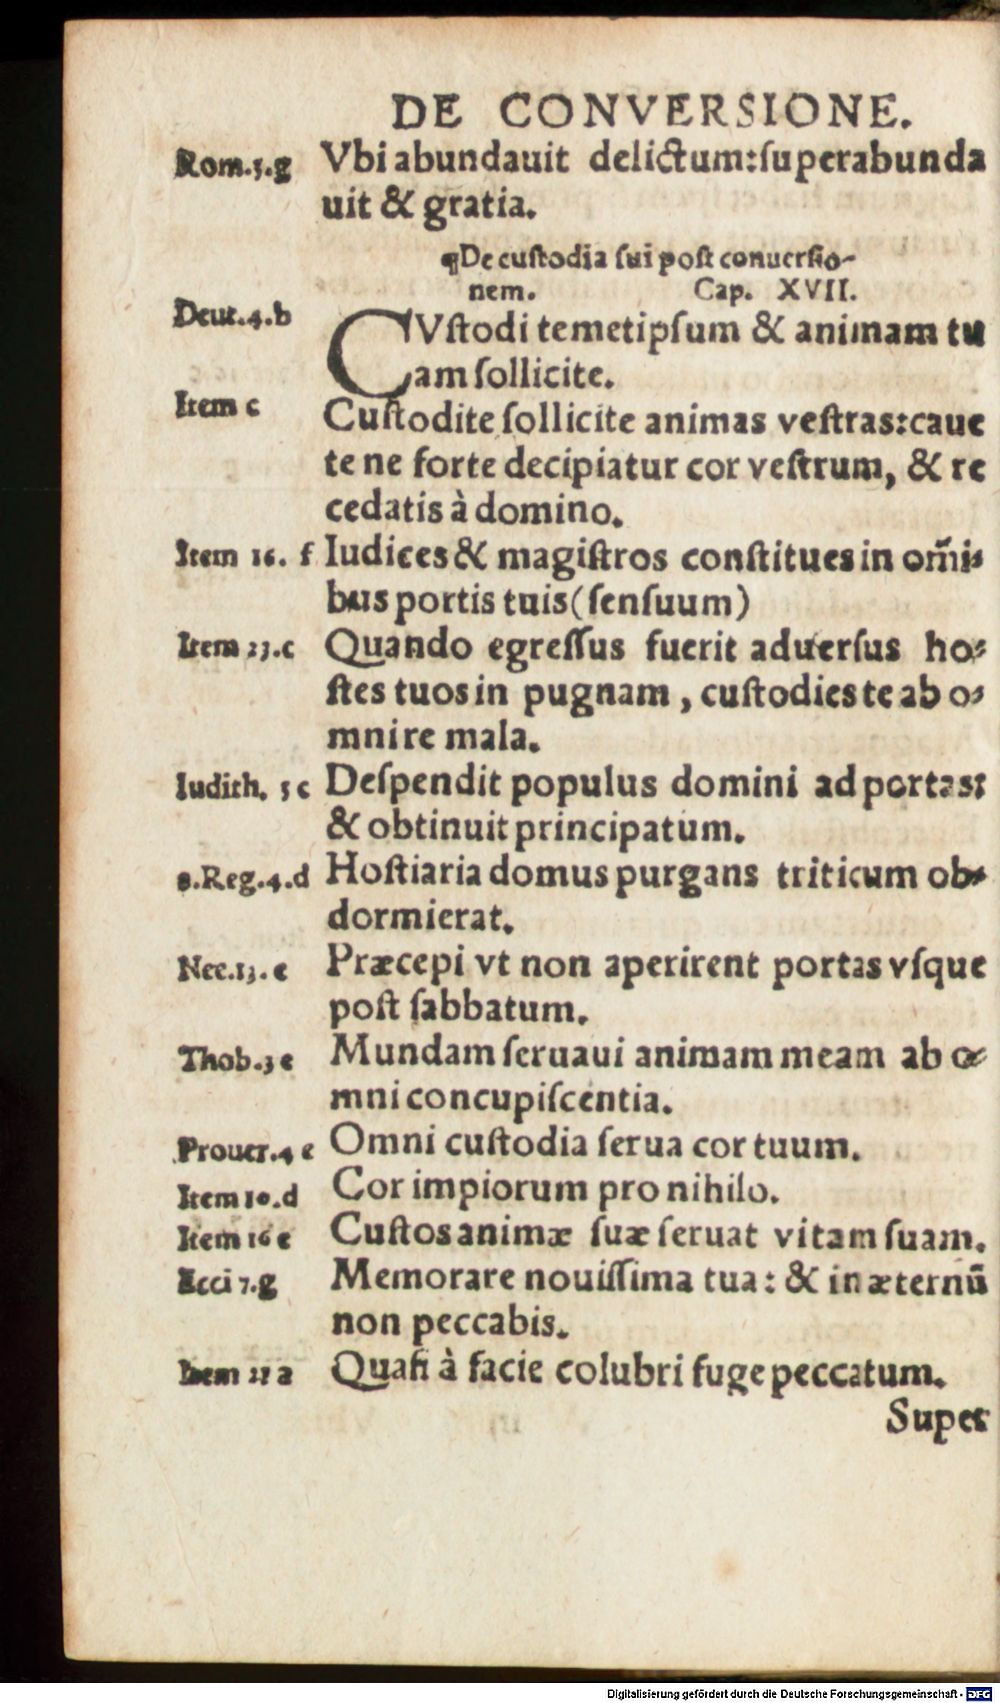 DE CONVERSIONE.
Rom.5.g Vbi abundauit delictum:superabunda
uit & gratia.
¶De custodia sui post conuersio-
nem. Cap. XVII.
Deut.4.b CVstodi temetipsum & animam tu
am sollicite.
Item c Custodite sollicite animas vestras:caue
te ne forte decipiatur cor vestrum, & re
cedatis à domino.
Item 16. f Iudices & magistros constitues in om̃i-
bus portis tuis(sensuum)
Item 23.c Quando egressus fuerit aduersus ho-
stes tuos in pugnam, custodies te ab o-
mni re mala.
Iudith. 5 c Despendit populus domini ad portas:
& obtinuit principatum.
Reg.4.d Hostiaria domus purgans triticum ob-
dormierat.
Nee.13.e Præcepi vt non aperirent portas vsque
post sabbatum.
Thob.3 e Mundam seruaui animam meam ab o-
mni concupiscentia.
Prouer.4 e Omni custodia serua cor tuum.
Item 10.d Cor impiorum pro nihilo.
Item 16 e Custos animæ suæ seruat vitam suam.
Ecci 7.g Memorare nouissima tua: & in æternū
non peccabis.
Item 21 a Quasi à facie colubri fuge peccatum.
Super
Digitalisierung gefördert durch die Deutsche Forschungsgemeinschaft - DFG